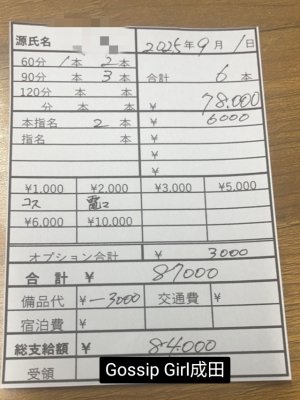 源氏名
2025年9月1日
60分 1本 2本
90分 本 3本
合計 6本
120分 本 本
分 本 本
¥ 78.000
本指名 2 本
¥ 6000
指名 本
¥
¥
¥
¥1,000 ¥2,000 ¥3,000 ¥5,000
コス 電マ
¥6,000 ¥10,000
オプション合計 ¥ 3000
合計 ¥ 87000
備品代 ¥-3000 交通費 ¥
宿泊費 ¥
総支給額 ¥ 84.000
受領
Gossip Girl成田